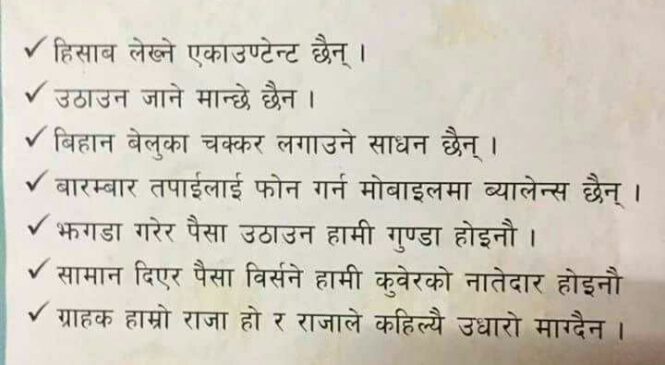 ✓ हिसाब लेख्ने एकाउण्टेन्ट छैन् ।
✓ उठाउन जाने मान्छे छैन ।
✓ बिहान बेलुका चक्कर लगाउने साधन छैन् ।
✓ बारम्बार तपाईलाई फोन गर्न मोबाइलमा ब्यालेन्स छैन् ।
✓ झगडा गरेर पैसा उठाउन हामी गुण्डा होइनौ ।
✓ सामान दिएर पैसा विर्सने हामी कुवेरको नातेदार होइनौ
✓ ग्राहक हाम्रो राजा हो र राजाले कहिल्यै उधारो माग्दैन ।